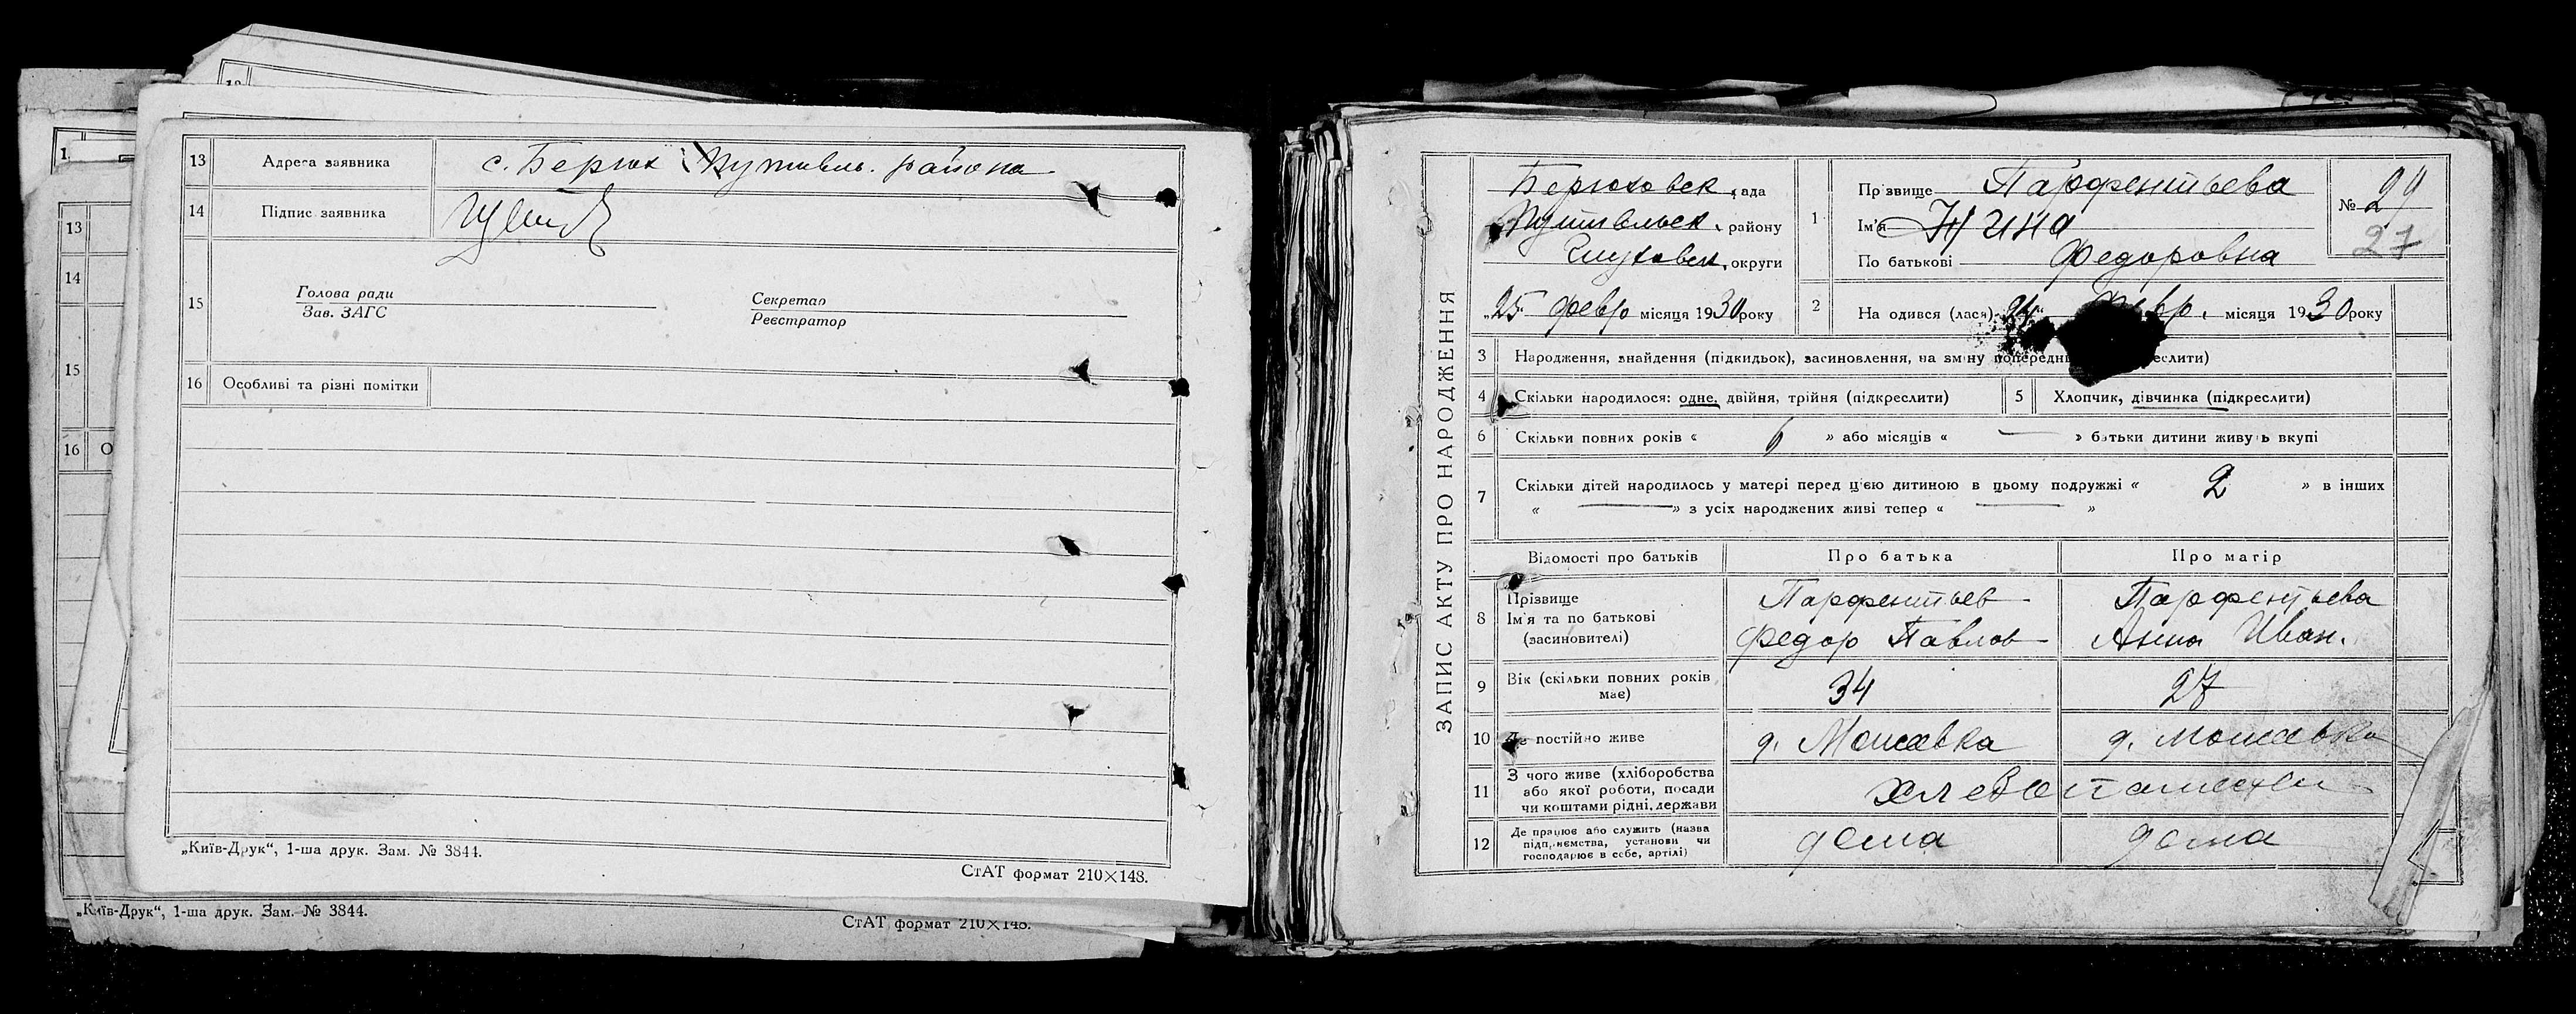 13 Адреса заявника с. Берюх Путивль. района
14 Підпис заявника
15 Голова ради Секретар
Зав. ЗАГС Реєстратор
16 Особливі та різні помітки
„Київ-Друк“, 1-ша друк. Зам. № 3844.
СтАТ формат 210×148.
13
14
15
16 О
„Київ-Друк“, 1-ша друк. Зам. № 3844.
СтАТ формат 210×148.
ЗАПИС АКТУ ПРО НАРОДЖЕННЯ
Берюховск рада
Путивльск району
Глуховск. округи
„25“ февр місяця 1930 року
1 Прізвище Парфентьева
Ім'я Нина
По батькові Федоровна
№ 29
27
2 Народився (лася) „24“ февр. місяця 1930 року
3 Народження, знайдення (підкидьок), засиновлення, на зміну попередн еслити)
4 Скільки народилося: одне, двійня, трійня (підкреслити) 5 Хлопчик, дівчинка (підкреслити)
6 Скільки повних років « 6 » або місяців « — » батьки дитини живуть вкупі
7 Скільки дітей народилось у матері перед цією дитиною в цьому подружжі « 2 » в інших
« — » з усіх народжених живі тепер « — »
Відомості про батьків Про батька Про матір
8 Прізвище Парфентьев Парфентьева
Ім'я та по батькові Федор Павлов Анна Иван.
(засиновителі)
9 Вік (скільки повних років має) 34 27
10 Де постійно живе д. Мошевка д. Мошевка
11 З чого живе (хліборобства
або якої роботи, посади
чи коштами рідні, держави
12 Де працює або служить (назва дома дома
підприємства, установи чи
господарює в себе, артілі)